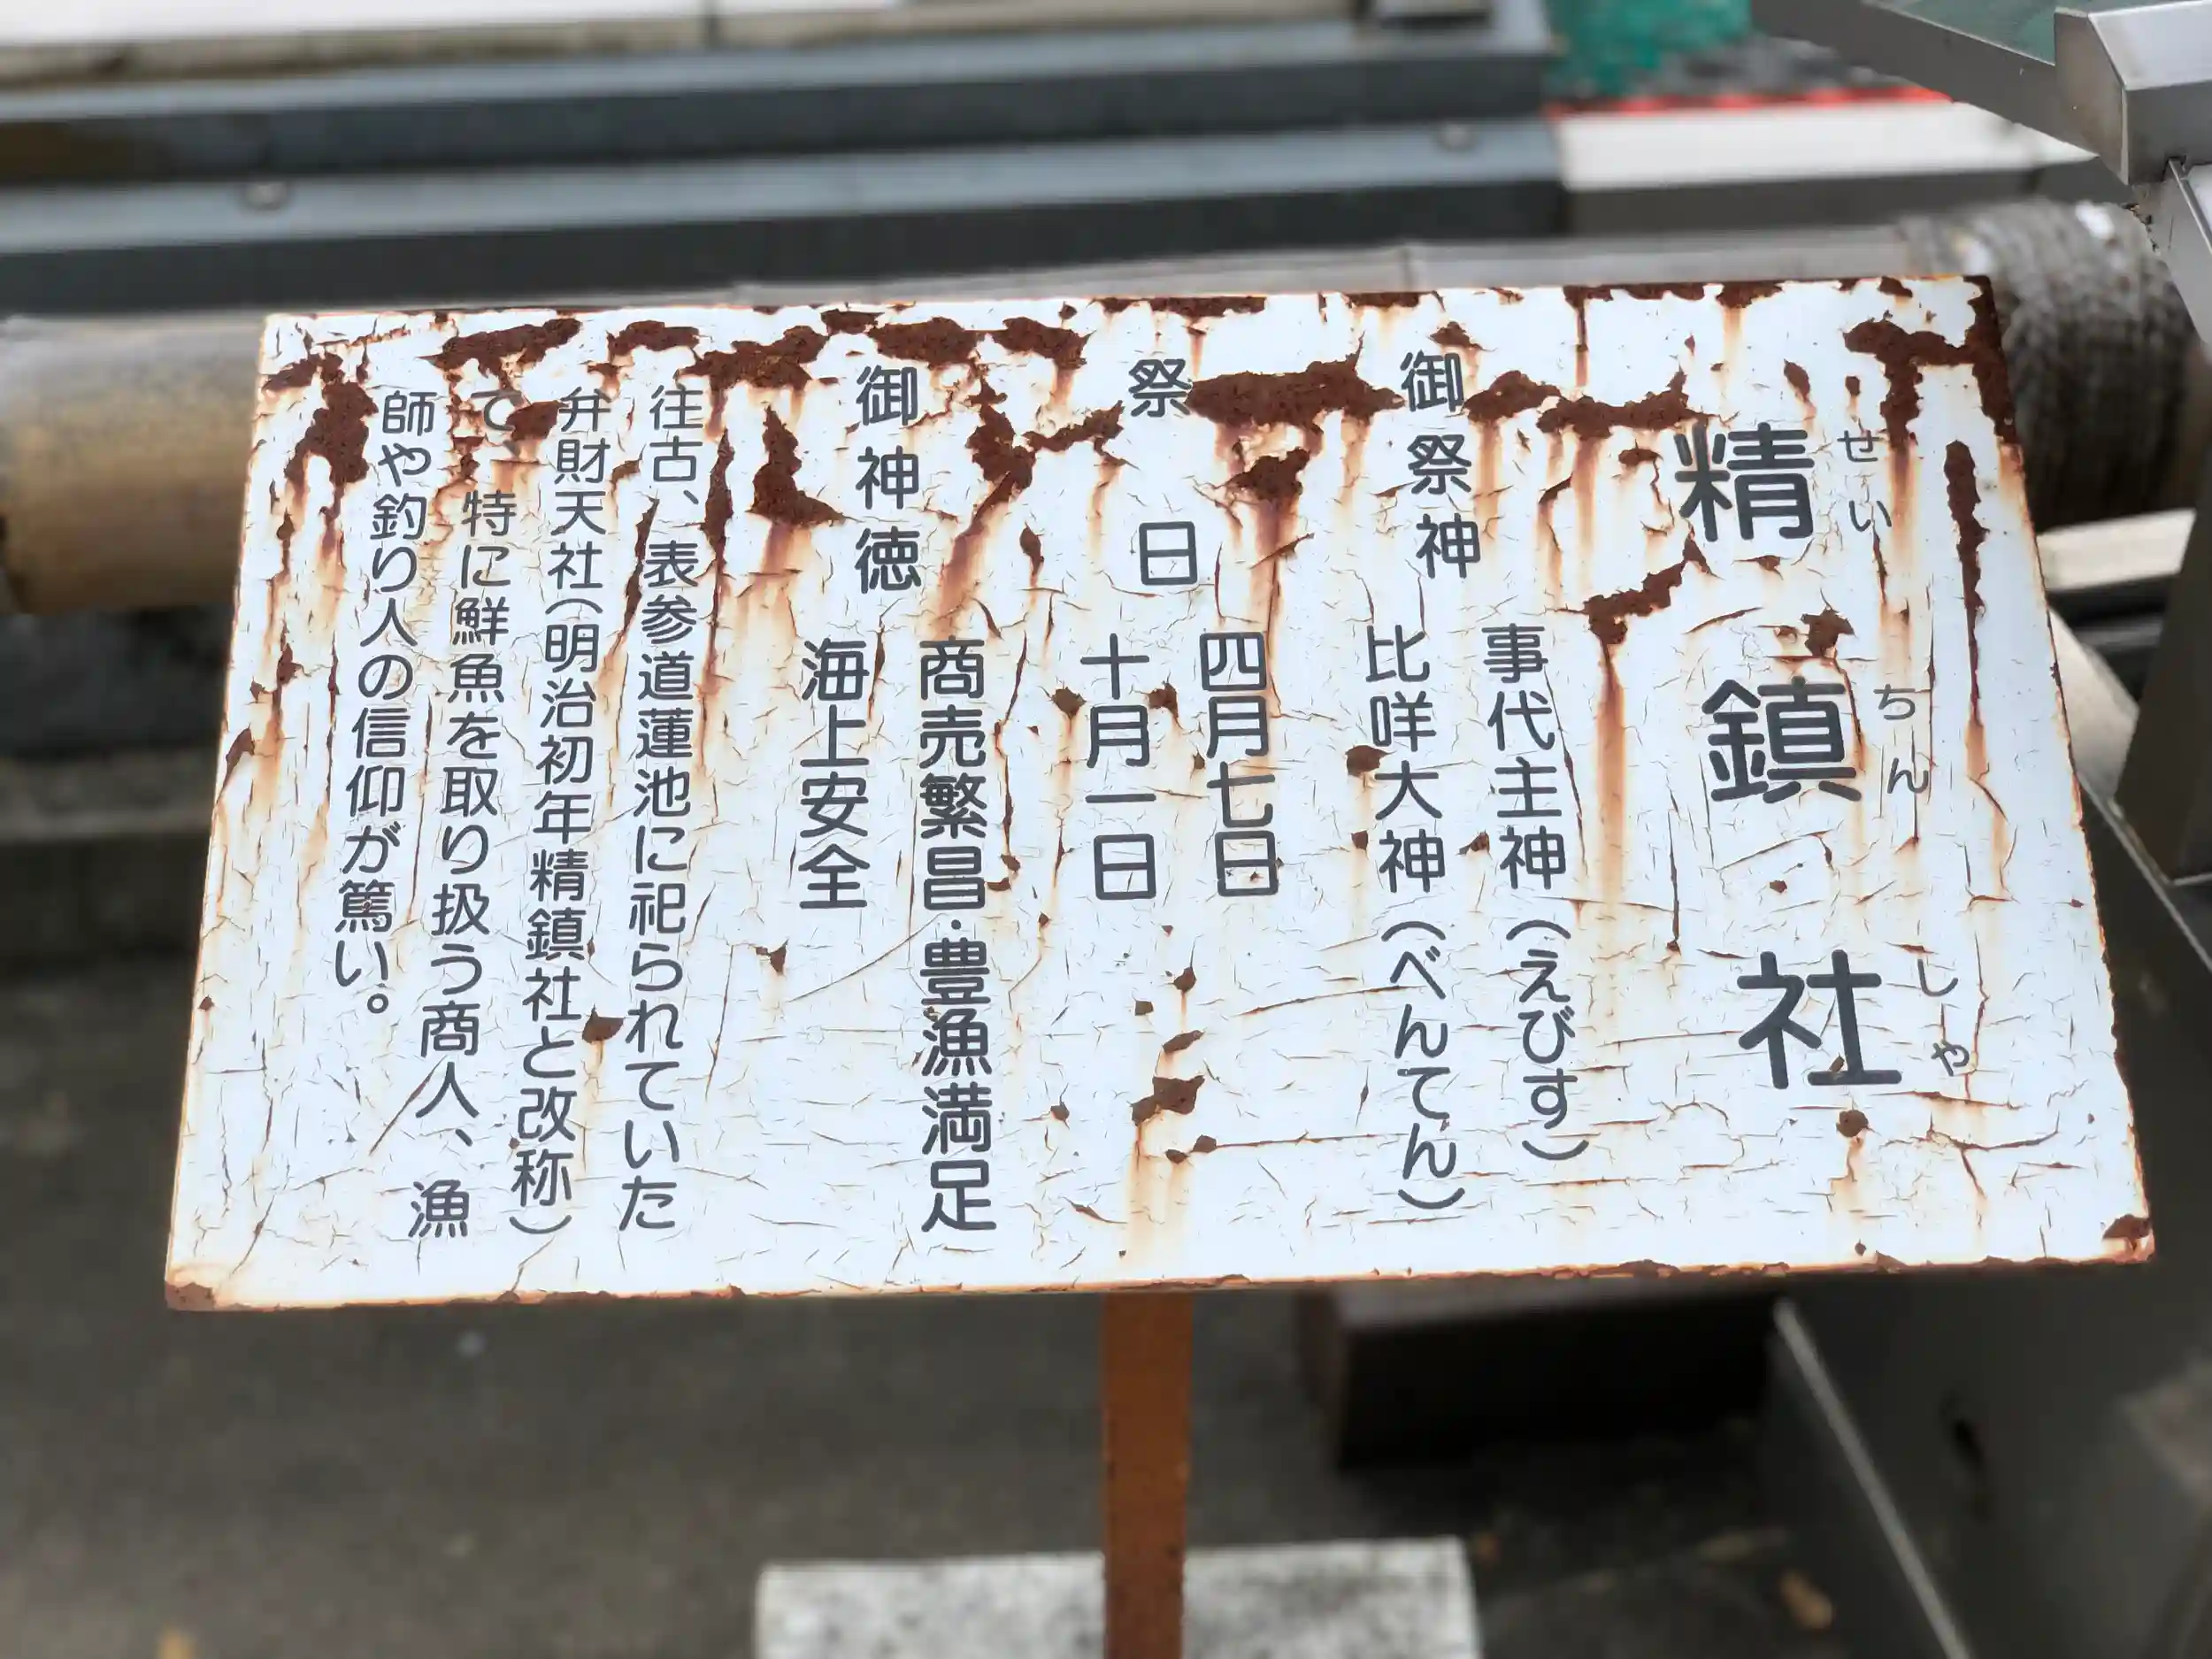 精鎮社
せいちんしゃ
御祭神
事代主神（えびす）
比咩大神（べんてん）
祭日
四月七日
十月一日
御神徳
商売繁昌・豊漁満足
海上安全
往古、表参道蓮池に祀られていた
弁財天社（明治初年精鎮社と改称）
で、特に鮮魚を取り扱う商人、漁
師や釣り人の信仰が篤い。